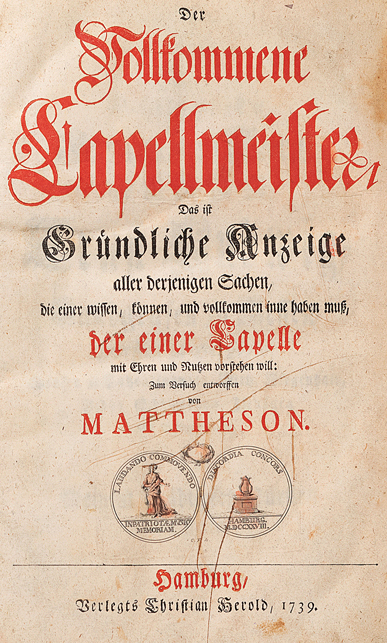 Der
Vollkommene
Capellmeister,
Das ist
Gründliche Anzeige
aller derjenigen Sachen,
die einer wissen, können, und vollkommen inne haben muß,
der einer Capelle
mit Ehren und Nutzen vorstehen will:
Zum Versuch entworffen
von
MATTHESON.
LAUDANDO COMMOVENDO
IN PATRIOTÆ MUSICI
MEMORIAM.
DISCORDIA CONCORS
HAMBURG.
MDCCXXVIII.
Hamburg,
Verlegts Christian Herold, 1739.